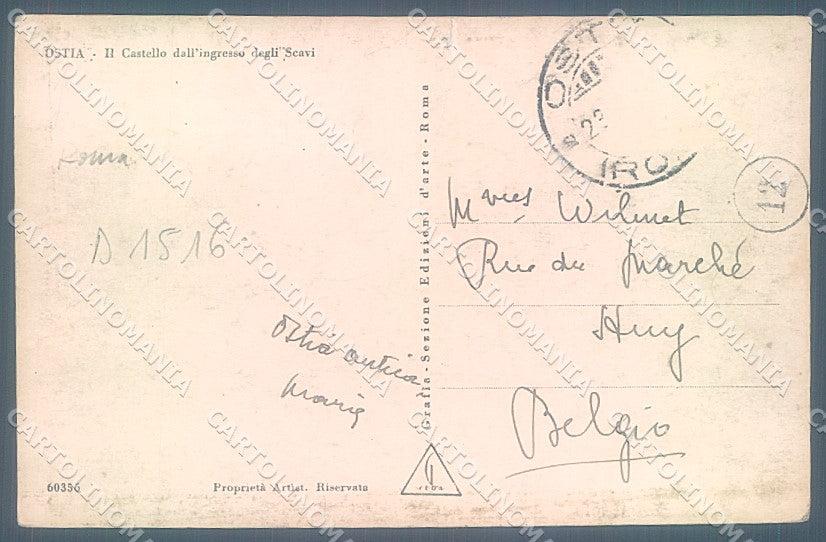 OSTIA - Il Castello dall'ingresso degli Scavi
Roma
D 1516
Ostia antica
Maria
60356
Proprietà Artist. Riservata
Grafia - Sezione Edizioni d'arte - Roma
OSTI
23
IRO
12
Mvres Wilmet
Rue du Marché
Huy
Belgio
CARTOLINOMANIA